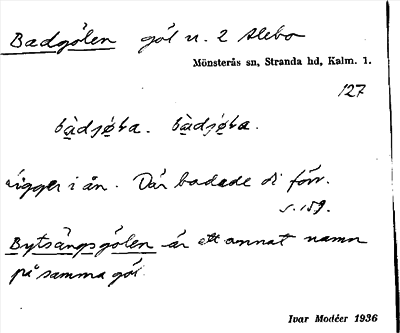 Badgölen göl n. 2 Alebo
Mönsterås sn, Stranda hd, Kalm. 1.
127
ligger i ån. Där badade di förr.
s. 159.
Bytsängsgölen är ett annat namn
på samma göl.
Ivar Modéer 1936